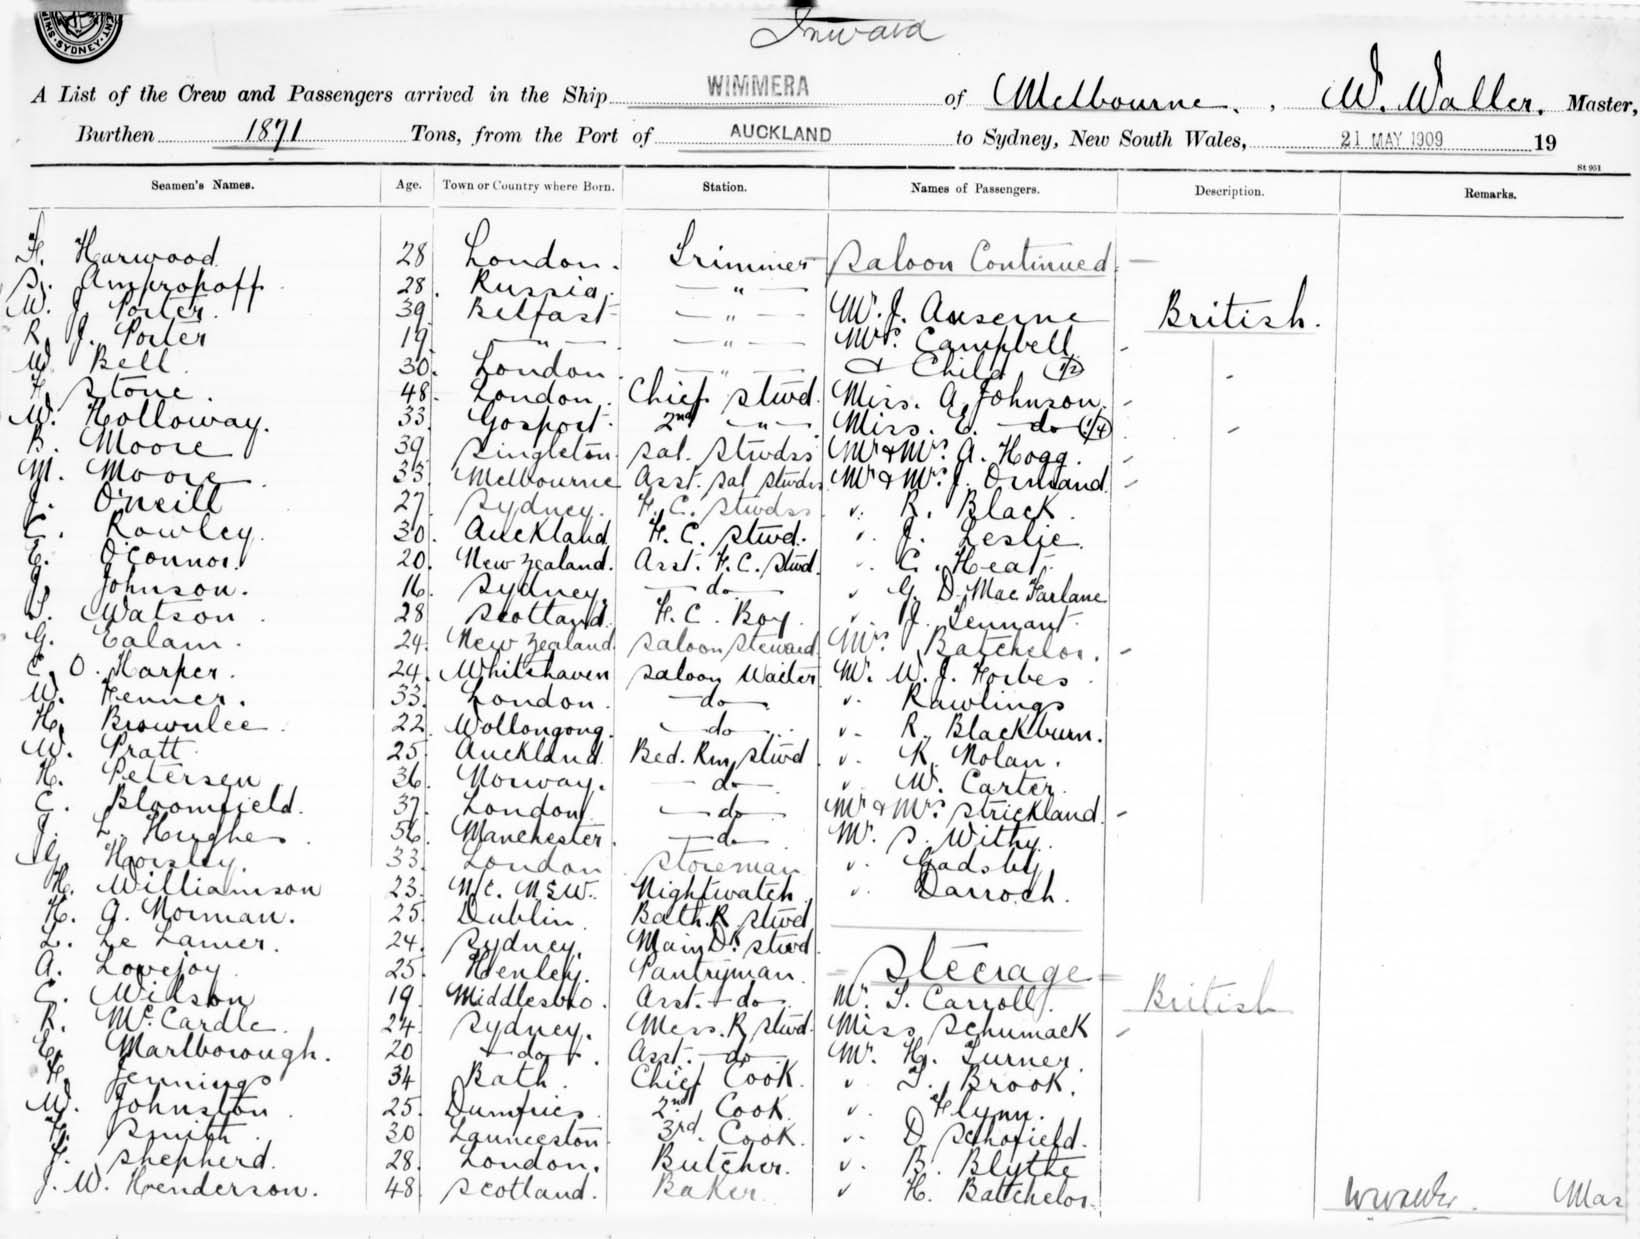 SYDNEY
Inward
A List of the Crew and Passengers arrived in the Ship WIMMERA of Melbourne, W. Waller, Master,
Burthen 1871 Tons, from the Port of AUCKLAND to Sydney, New South Wales, 21 MAY 1909 19
St 951
Seamen's Names. Age. Town or Country where Born. Station. Names of Passengers. Description. Remarks.
F. Harwood 28 London. Trimmer Saloon Continued —
28. Russia. — " —
W. J. Porter. 39. Belfast — " — Mr. J. British.
R. J. Porter 19 — " — — " — Mrs. Campbell -
W. Bell. 30. London — " — & Child (1/2) -
H. Stone. 48. London. Chief Stwd. Miss. A. Johnson. -
W. Holloway. 33. Gosport. 2nd — " — Miss. E. do (1/4) -
B. Moore 39 Singleton. Sal. Stwdss Mr & Mrs. A. Hogg. -
M. Moore 33. Melbourne Asst. Sal Stwdss Mr & Mrs. J. Ormand. -
J. O'Neill 27. Sydney. F. C. Stwdss ". R. Black.
C. Rowley. 30. Auckland F. C. Stwd. ". J. Leslie.
E. O'Connor. 20. New Zealand. Asst. F. C. Stwd. ". C. Heat.
J. Johnson. 16. Sydney. — do — " G. D. MacFarlane
T. Watson 28 Scotland. F. C. Boy. " J. Tennant.
G. Ealam. 24. New Zealand. Saloon Steward Mrs. Batchelor. -
C. O. Harper. 24. Whitehaven Saloon Waiter Mr. W. J. Forbes
W. Fenner. 33. London. — do — ". Rawlings
H. Brownlee 22. Wollongong. — do — ". R. Blackburn.
W. Pratt 25. Auckland. Bed. Rm, Stwd ". K. Nolan.
H. Petersen 36. Norway. — do — " W. Carter.
C. Bloomfield. 37. London — do — Mr & Mrs Strickland. -
J. L. Hughes 56. Manchester. — do — Mr. S. Withy.
G. Horsley. 33. London Storeman ". Gadsby
H. Williamson 23. N/C. NSW. Nightwatch ". Darroch.
H. A. Norman. 25. Dublin Bath. R Stwd
L. Le Lamer. 24. Sydney. Main Dk. Stwd
A. Lovejoy 25. Henley. Pantryman. Steerage
C. Wilson 19. Middlesbro. Asst. — do — Mr. T. Carroll. British
R. McCardle. 24. Sydney. Mess. R Stwd. Miss Schumack -
E. Marlborough. 20 — do — Asst. — do — Mr. H. Turner.
F. Jennings 34 Bath. Chief Cook. " T. Brook.
W. Johnston 25. Dumfries 2nd Cook. ". Flynn.
F. Smith. 30 Launceston 3rd. Cook. ". D. Schofield.
F. Shepherd. 28. London. Butcher. ". B. Blythe
J. W. Henderson. 48. Scotland. Baker. " H. Battchelor. Mas